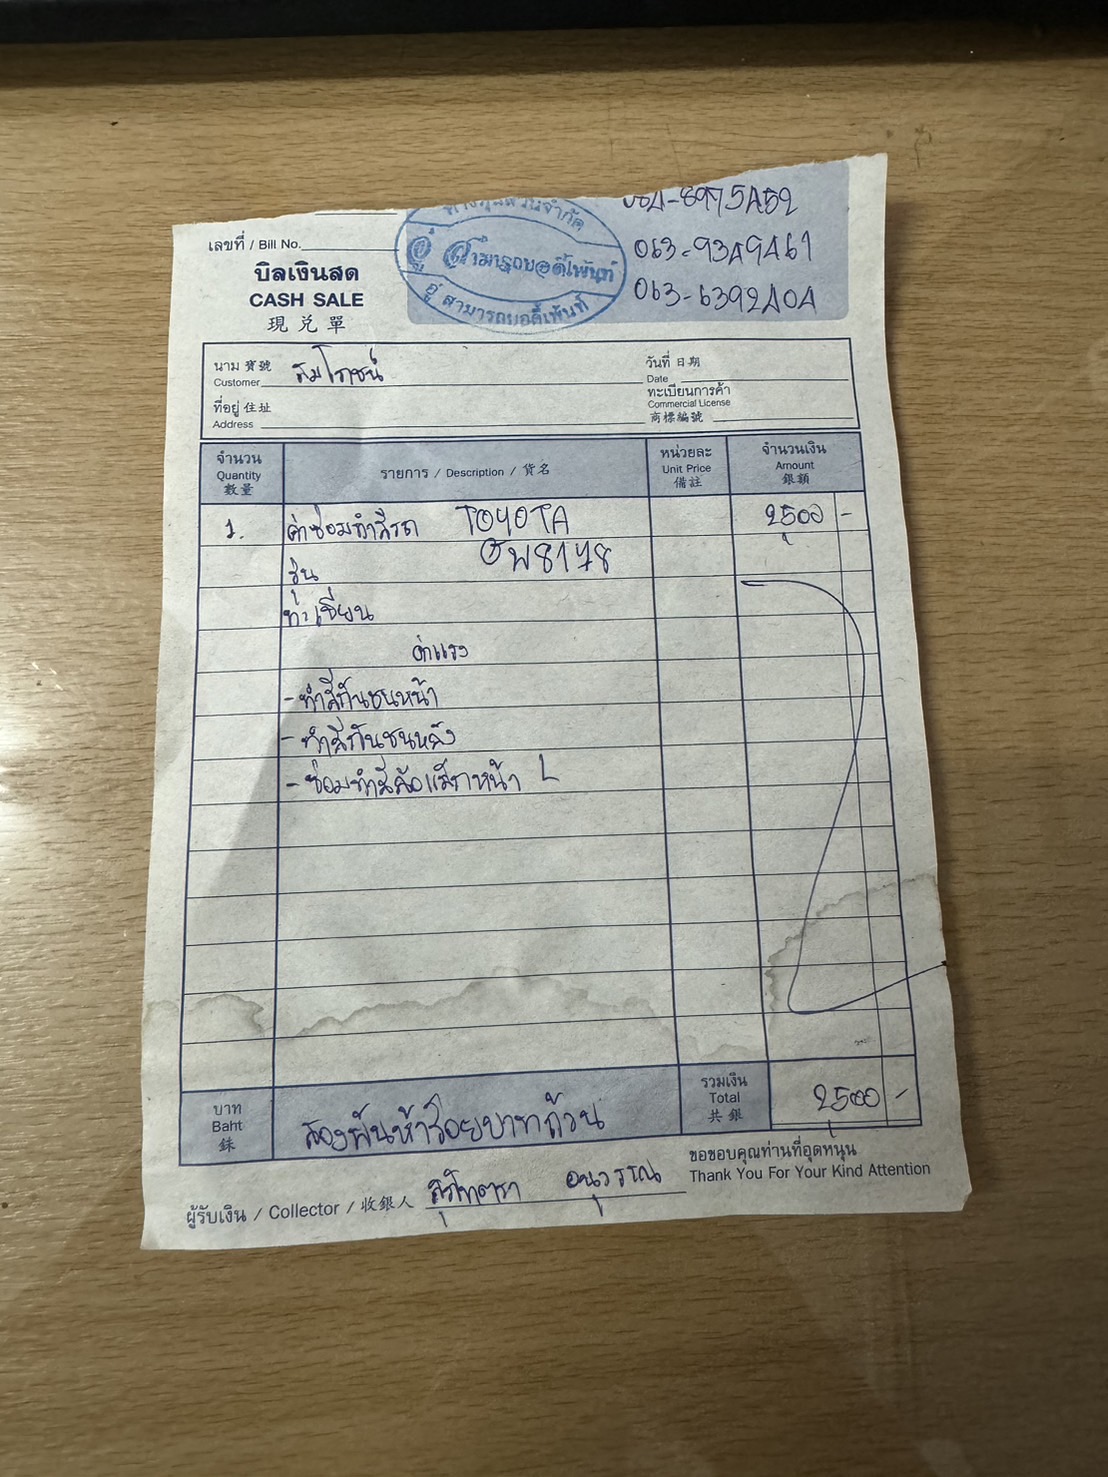 ห้างหุ้นส่วนจำกัด
อู่ สามารถบอดี้เพ้นท์
อู่ สามารถบอดี้เพ้นท์
084-8975452
063-9349461
063-6392404
เลขที่ / Bill No.
บิลเงินสด
CASH SALE
現兌單
นาม 寶號 สมโภชน์
Customer
วันที่ 日期
Date
ที่อยู่ 住址
Address
ทะเบียนการค้า
Commercial License
商標編號
จำนวน
Quantity
數量
รายการ / Description / 貨名
หน่วยละ
Unit Price
備註
จำนวนเงิน
Amount
銀額
1. ค่าซ่อมทำสีรถ TOYOTA 2500 -
รุ่น 8178
ทะเบียน
ค่าแรง
- ทำสีกันชนหน้า
- ทำสีกันชนหลัง
- ซ่อมทำสีล้อแม็กหน้า L
บาท
Baht
銖
สองพันห้าร้อยบาทถ้วน
รวมเงิน
Total
共銀
2500 -
ขอขอบคุณท่านที่อุดหนุน
Thank You For Your Kind Attention
ผู้รับเงิน / Collector / 收銀人